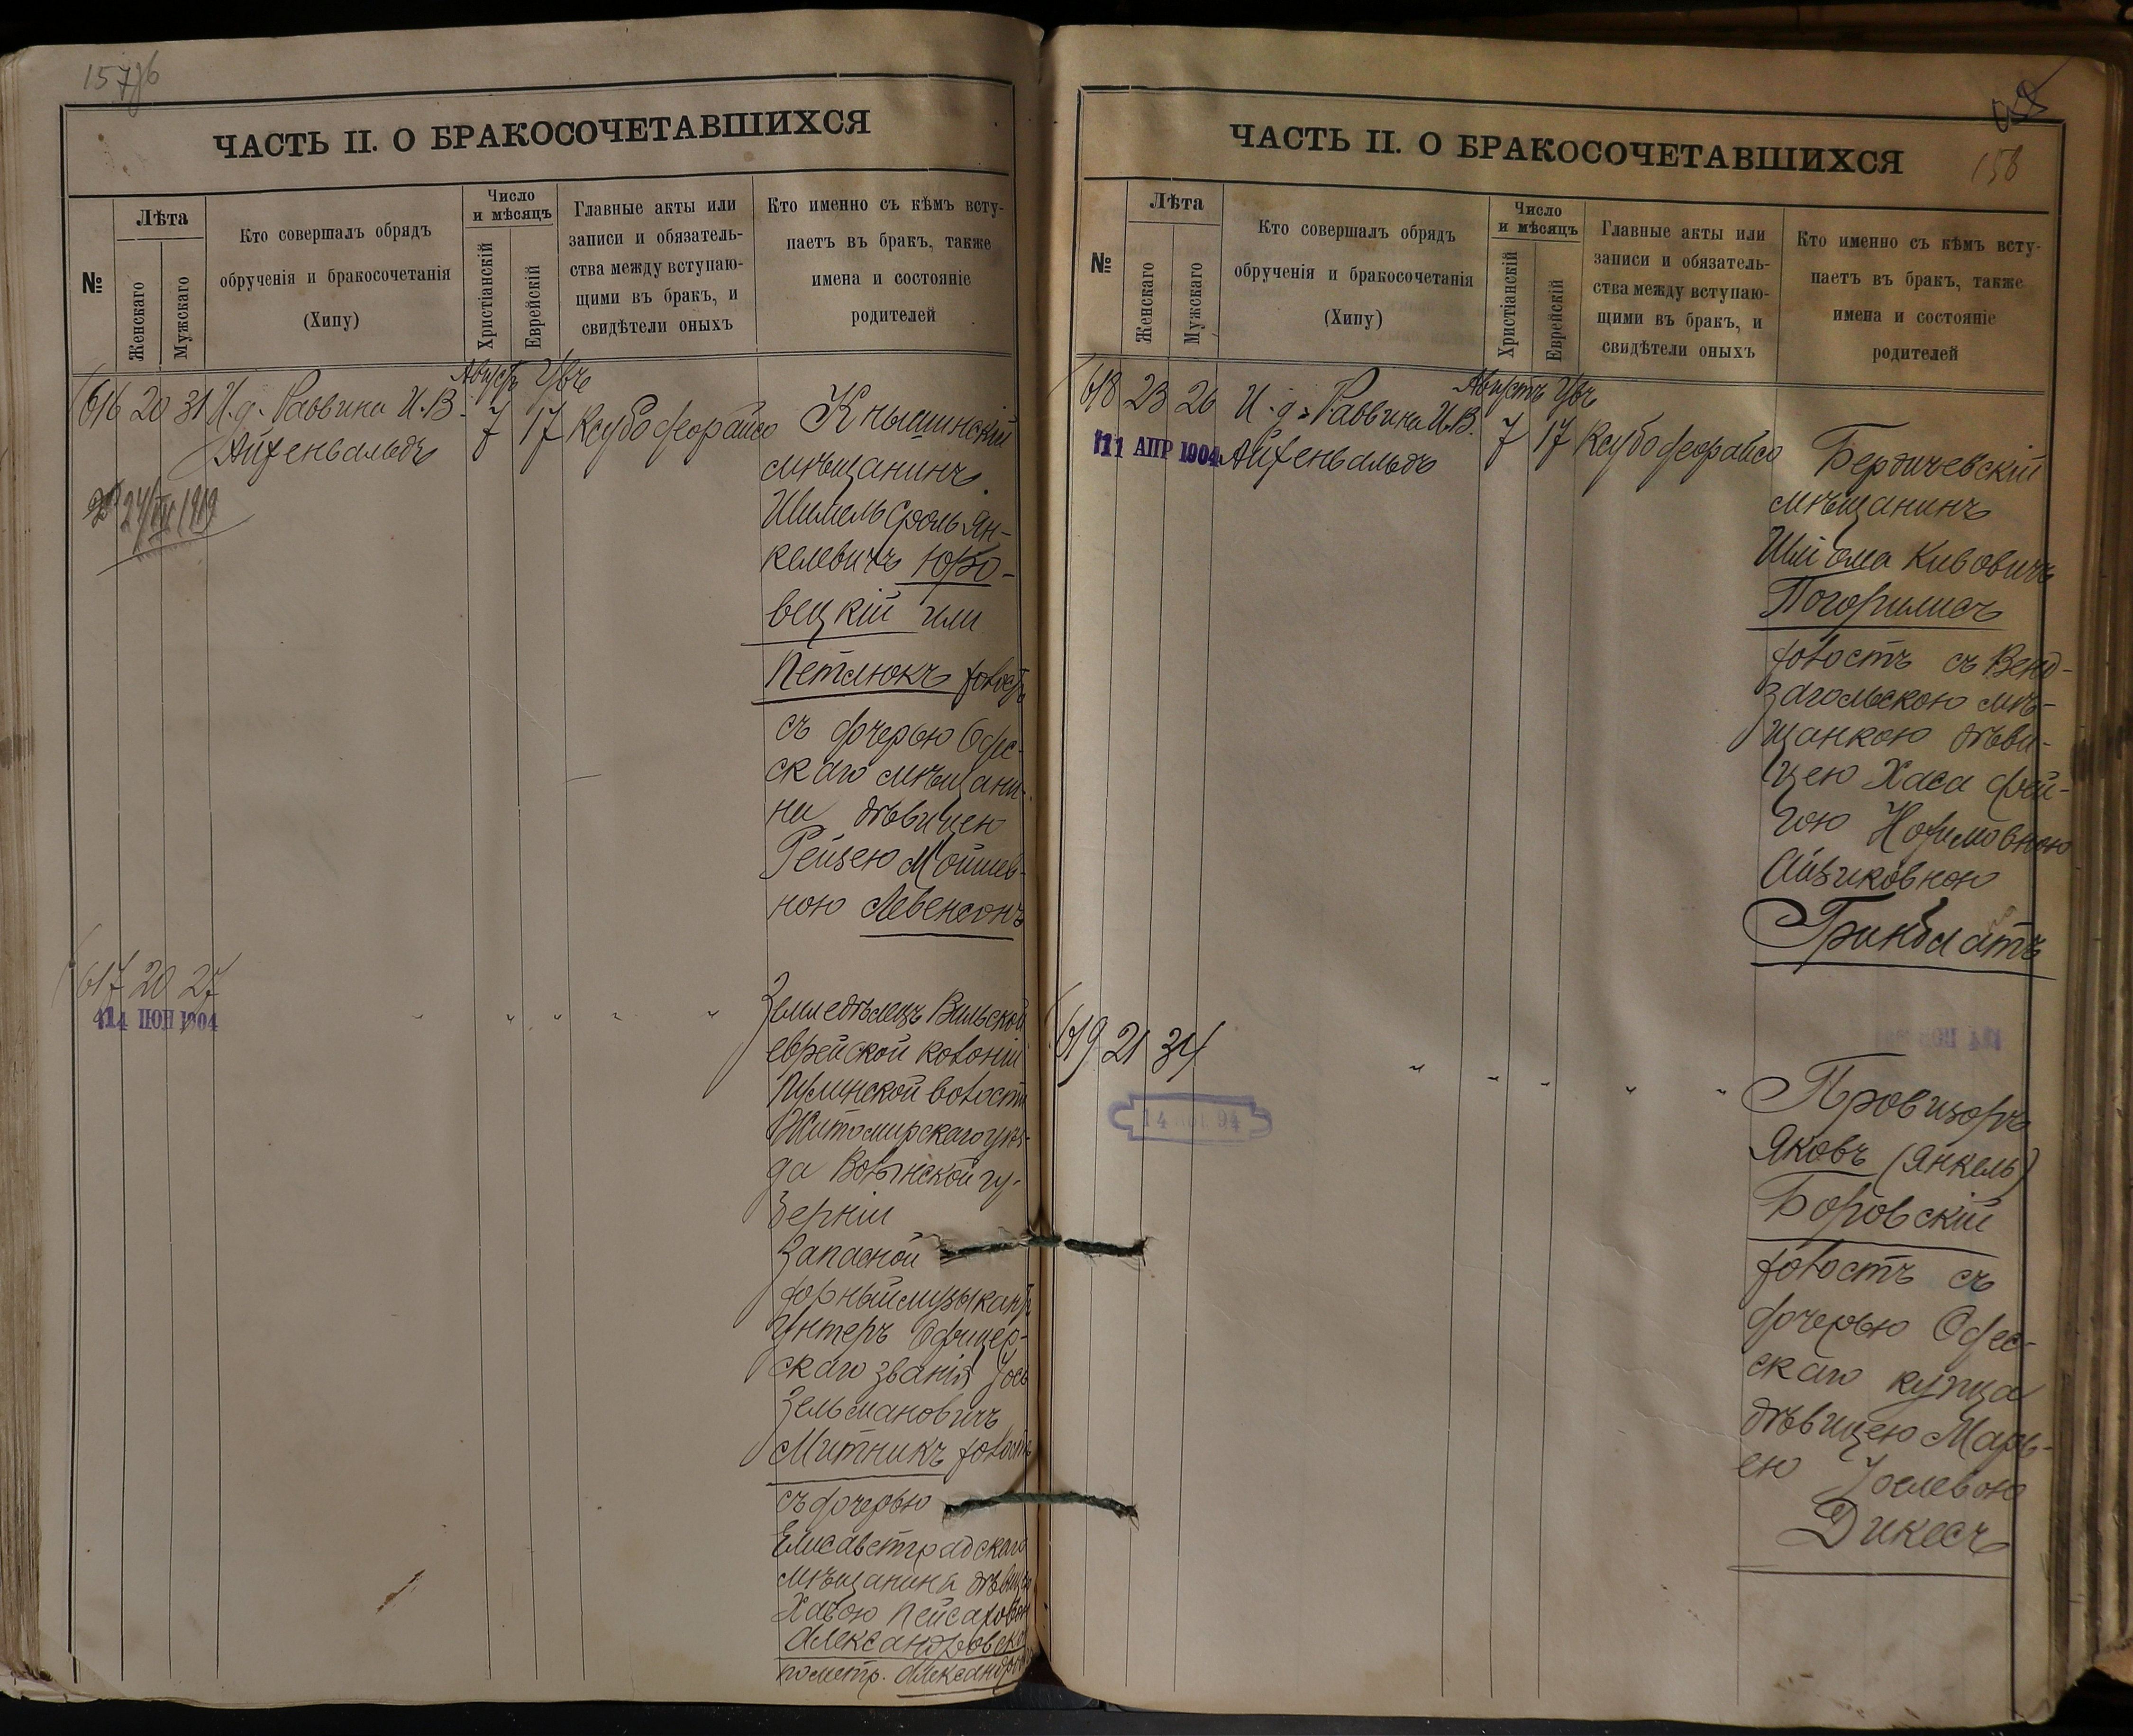 ЧАСТЬ II. О БРАКОСОЧЕТАВШИХСЯ
№
Лѣта
Женскаго
Мужскаго
Кто совершалъ обрядъ
обрученія и бракосочетанія
(Хипу)
Число
и мѣсяцъ
Христіанскій
Еврейскій
Главные акты или
записи и обязатель-
ства между вступаю-
щими въ бракъ, и
свидѣтели оныхъ
Кто именно съ кѣмъ всту-
паетъ въ бракъ, также
имена и состояніе
родителей
Августъ
616 20 31 И. д. Раввина И. В.
Айхенвальдъ
7 17
Кнышинскій
мѣщанинъ
Шмель Сроль Ян-
келевичъ Юро-
вецкій или
Петлюкъ холостъ
съ дочерью Одес-
скаго мѣщани-
на дѣвицею
Рейзею Мойшев-
ною Левенсонъ
617 20 27
14 ІЮН 1904
Земледѣлецъ Вильской
еврейской колоніи
Пулинской волости
Житомирскаго уѣз-
да Волынской гу-
берніи
Запасной
унтеръ офицер-
скаго званія Іось
Зельмановичъ
Митникъ холостъ
съ дочерью
Елисаветградскаго
мѣщанина дѣвицею
Хавою Пейсаховою
Александровск
ЧАСТЬ II. О БРАКОСОЧЕТАВШИХСЯ
158
№
Лѣта
Женскаго
Мужскаго
Кто совершалъ обрядъ
обрученія и бракосочетанія
(Хипу)
Число
и мѣсяцъ
Христіанскій
Еврейскій
Главные акты или
записи и обязатель-
ства между вступаю-
щими въ бракъ, и
свидѣтели оныхъ
Кто именно съ кѣмъ всту-
паетъ въ бракъ, также
имена и состояніе
родителей
Августъ
618 23 26 И. д. Раввина И. В.
Айхенвальдъ
7 17
11 АПР 1904
Бердичевскій
мѣщанинъ
Шліома Кивовичъ
Погорилисъ
холостъ съ Венд-
загольскою мѣ-
щанкою дѣви-
цею Хаса Фей-
гою
Айзиковною
Гринблатъ
619 21 34
Провизоръ
Яковъ (Янкель)
Боровскій
холостъ съ
дочерью Одес-
скаго купца
дѣвицею Марь-
ею Іоселевою
Дикесъ